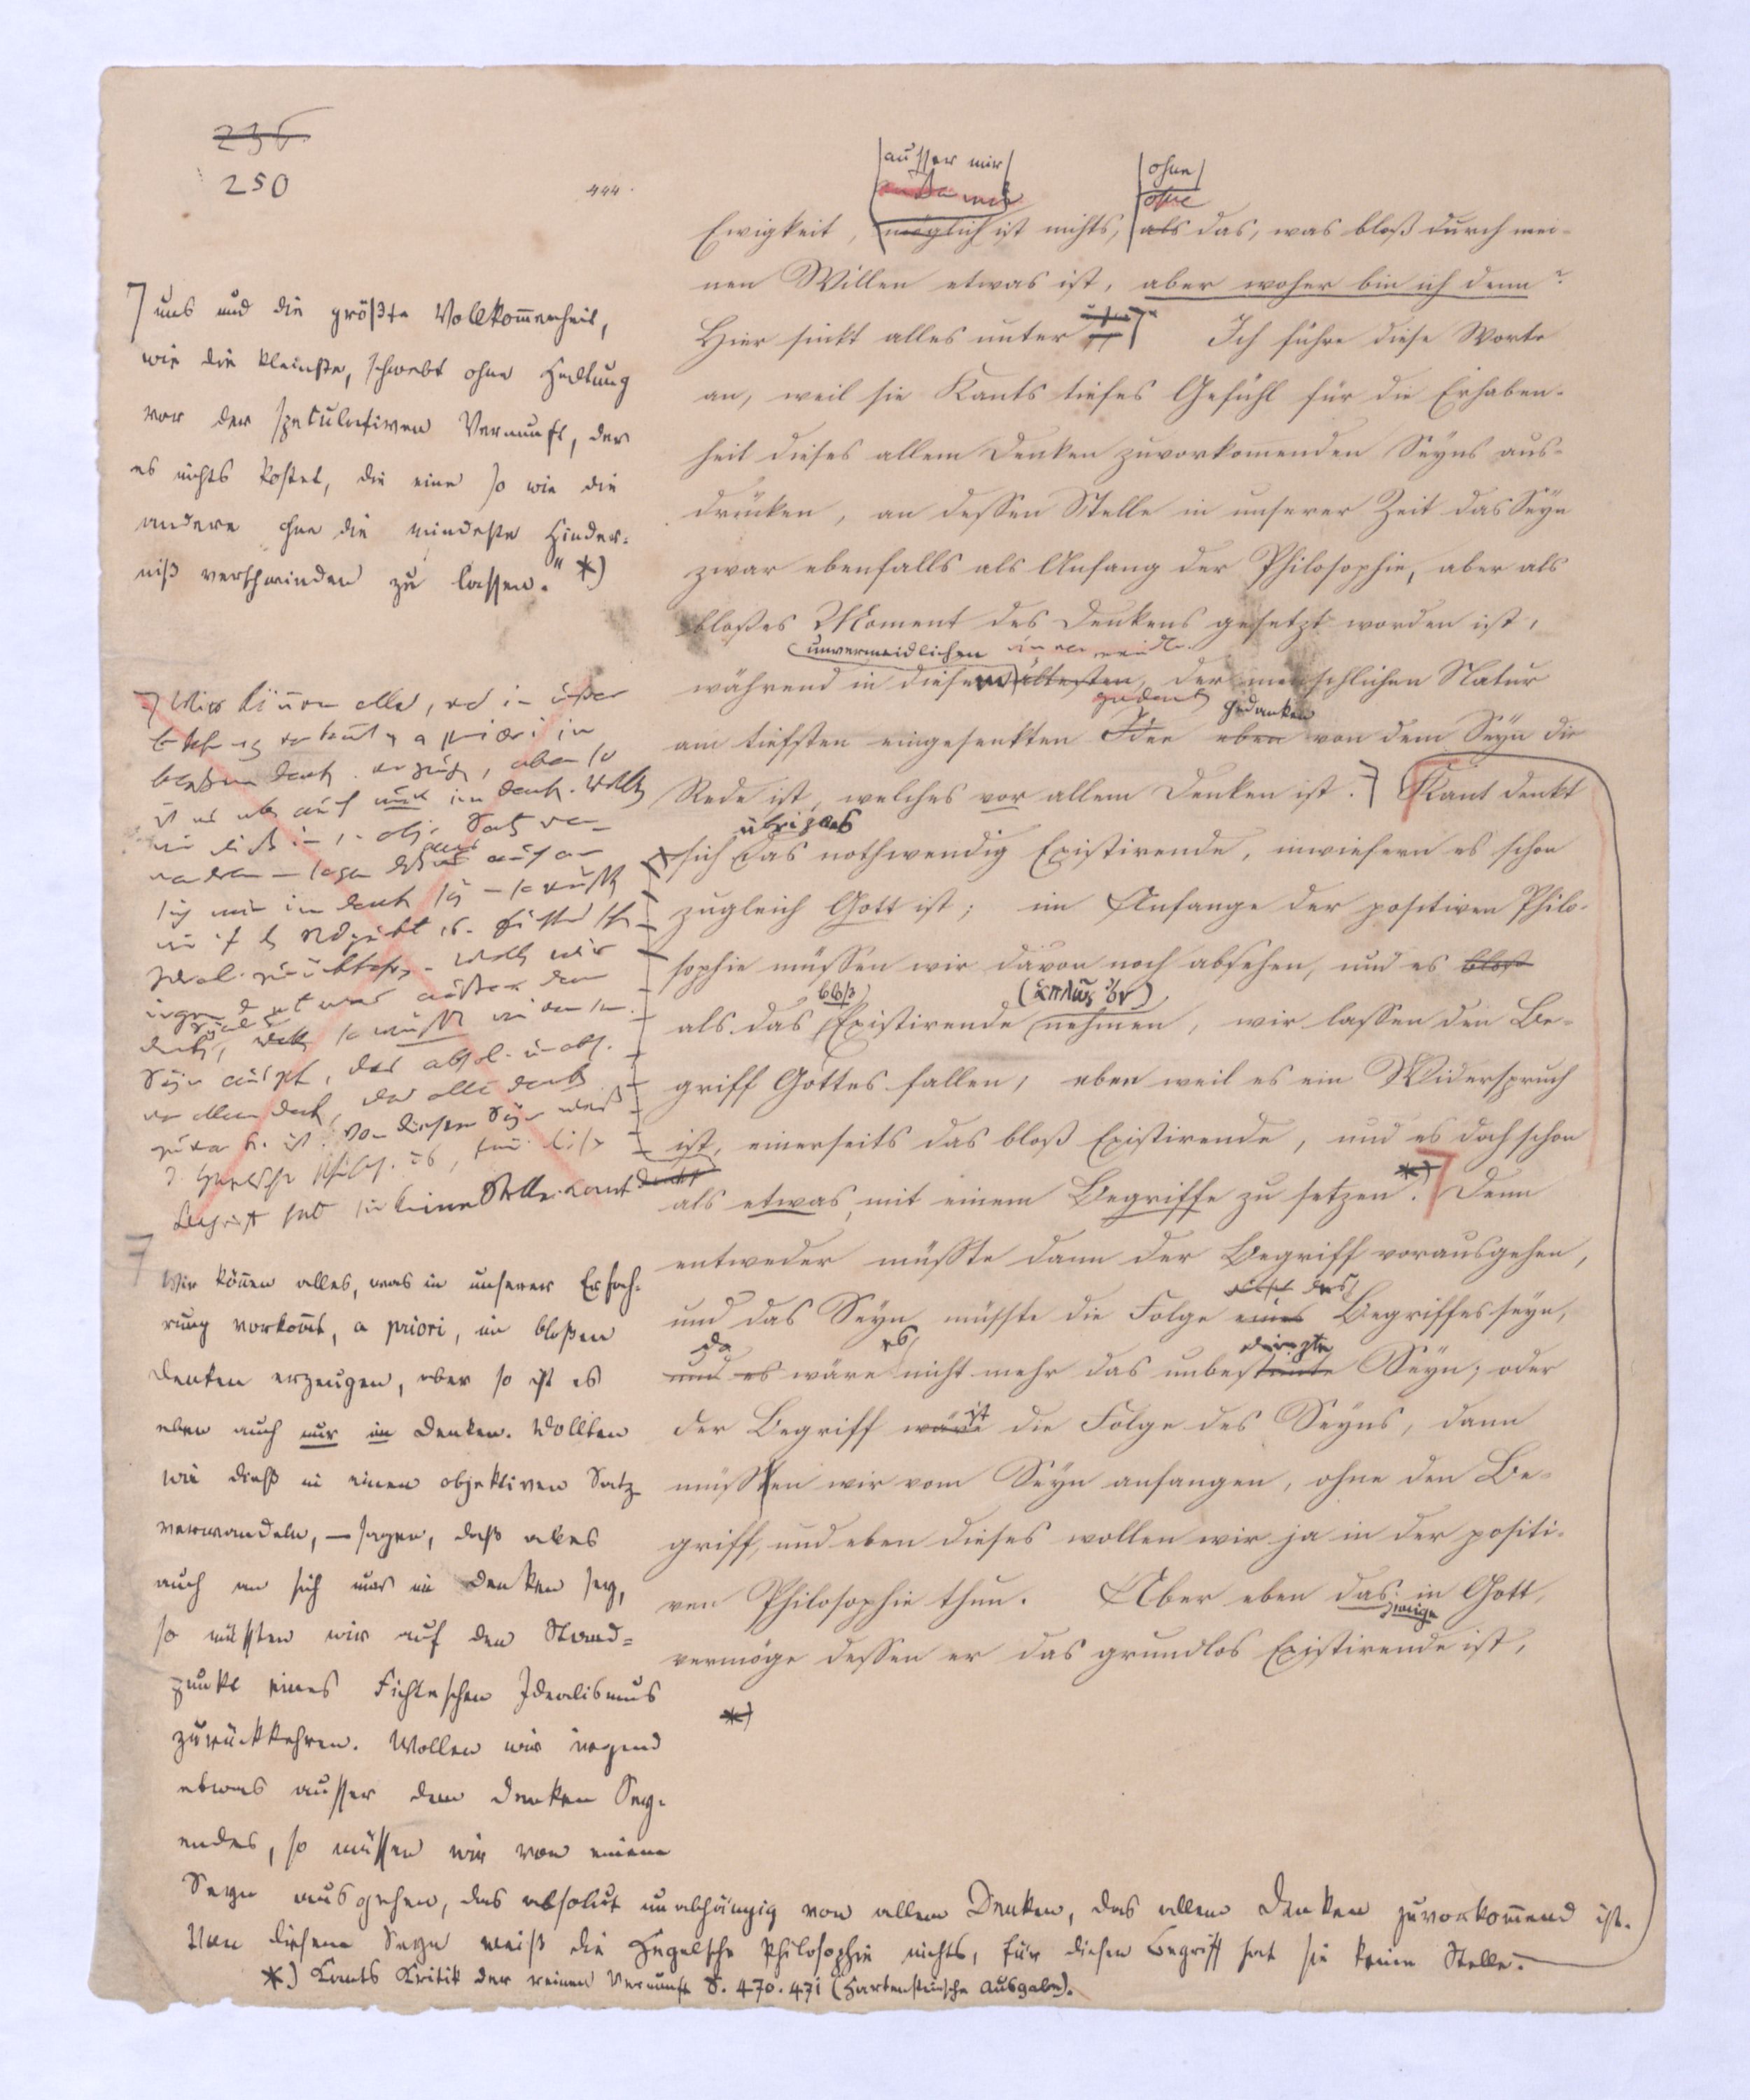 236
250
444.
ausser mir
ohne
ohne
Ewigkeit, möglich ist nichts, als das, was bloß durch mei-
nen Willen etwas ist, aber woher bin ich denn?
Hier sinkt alles unter Ich führe diese Worte
an, weil sie Kants tiefes Gefühl für die Erhaben-
heit dieses allem Denken zuvorkom̅enden Seyns aus-
drücken, an dessen Stelle in unserer Zeit das Seyn
zwar ebenfalls als Anfang der Philosophie, aber als
bloßes Moment des Denkens gesetzt worden ist,
unvermeidlichen
während in diesem ältesten, der menschlichen Natur
Gedanken
am tiefsten eingesenkten Idee eben von dem Seyn die
Rede ist, welches vor allem Denken ist. Kant denkt
übrigens
sich das nothwendig Existirende, inwiefern es schon
zugleich Gott ist; im Anfange der positiven Philo-
sophie müssen wir davon noch absehen, und es bloß
bloß (ἁπλῶς ὄν)
als das Existirende nehmen, wir lassen den Be-
griff Gottes fallen, eben weil es ein Widerspruch
ist, einerseits das bloß Existirende, und es doch schon
als etwas, mit einem Begriffe zu setzen *). Denn
entweder müsste dann der Begriff vorausgehen,
des
und das Seyn müsste die Folge eines Begriffes seyn,
da es dingte
und es wäre nicht mehr das unbestimmte Seyn; oder
ist
der Begriff wäre die Folge des Seyns, dann
müssten wir vom Seyn anfangen, ohne den Be-
griff, und eben dieses wollen wir ja in der positi-
ven Philosophie thun. Aber eben das in Gott,
jenige
vermöge dessen er das grundlos Existirende ist,
*)
uns und die größte Vollkom̅enheit,
wie die kleinste, schwebt ohne Haltung
vor der spekulativen Vernunft, der
es nichts kostet, die eine so wie die
andere ohne die mindeste Hinder-
niß verschwinden zu lassen." *)
Wir können alles, in unser
a priori im
bloßen Denk. , aber so
ist es eben auch nur im Denk. Wollt
Satz
sagen auch an
sich nur im Denk sey – so müßt
wir
Wollen wir
irgend etwas außer dem
Denk so müßt
Seyn ausgeh, das absol. unabh.
vor allem Denk, das alle Denk
ist. Von diesem Seyn weiß
d. Hegelsche Philos. , für dies
Begriff hat sie keine Stelle. Kant denkt
Wir kön̅en alles, was in unserer Erfah-
rung vorkom̅t, a priori, im bloßen
Denken erzeugen, aber so ist es
eben auch nur im Denken. Wollten
wir dieß in einen objektiven Satz
verwandeln, – sagen, daß alles
auch an sich nur im Denken sey,
so müssten wir auf den Stand-
punkt eines Fichteschen Idealismus
zurückkehren. Wollen wir irgend
etwas ausser dem Denken Sey-
endes, so müssen wir von einem
Seyn ausgehen, das absolut unabhängig von allem Denken, das allem Denken zuvorkom̅end ist.
Von diesem Seyn weiß die Hegelsche Philosophie nichts, für diesen Begriff hat sie keine Stelle. –
*) Kants Kritik der reinen Vernunft S. 470. 471 (Hartensteinsche Ausgabe).